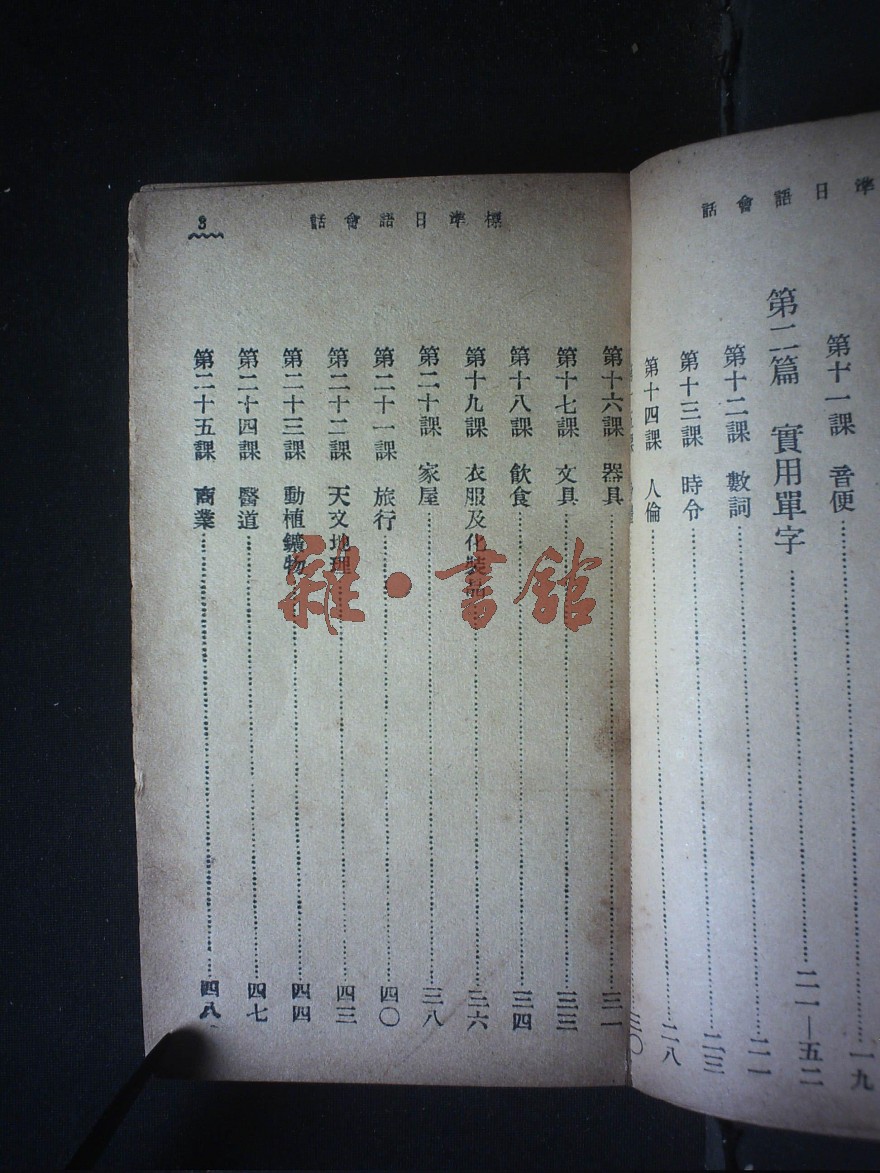 準日語會話
第十一課 音便 一九
第二篇 實用單字 二一—五二
第十二課 數詞 二一
第十三課 時令 二三
第十四課 人倫 二八
三〇
標準日語會話
3
第十六課 器具 三一
第十七課 文具 三三
第十八課 飲食 三四
第十九課 衣服及化裝品 三六
第二十課 家屋 三八
第二十一課 旅行 四〇
第二十二課 天文地理 四三
第二十三課 動植鑛物 四四
第二十四課 醫道 四七
第二十五課 商業 四八
雜·書館